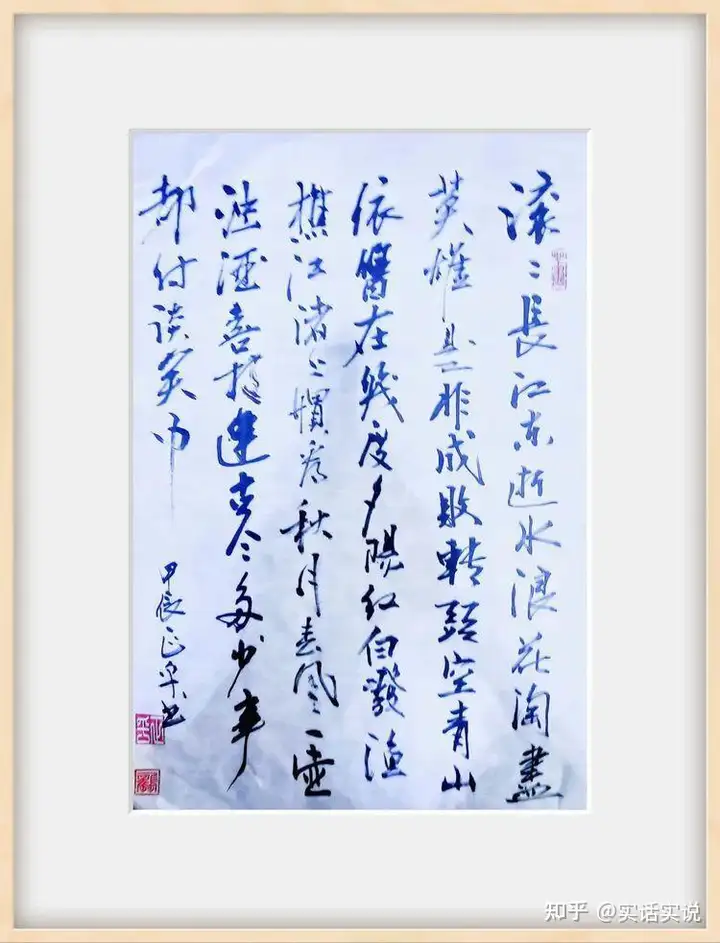 滚〻長江东逝水浪花淘盡
英雄是非成敗轉頭空青山
依舊在幾度夕陽红白髮渔
樵江渚上慣看秋月春风一壶
浊酒喜相逢古今多少事
都付谈笑中
甲辰正书
知乎 @实话实说